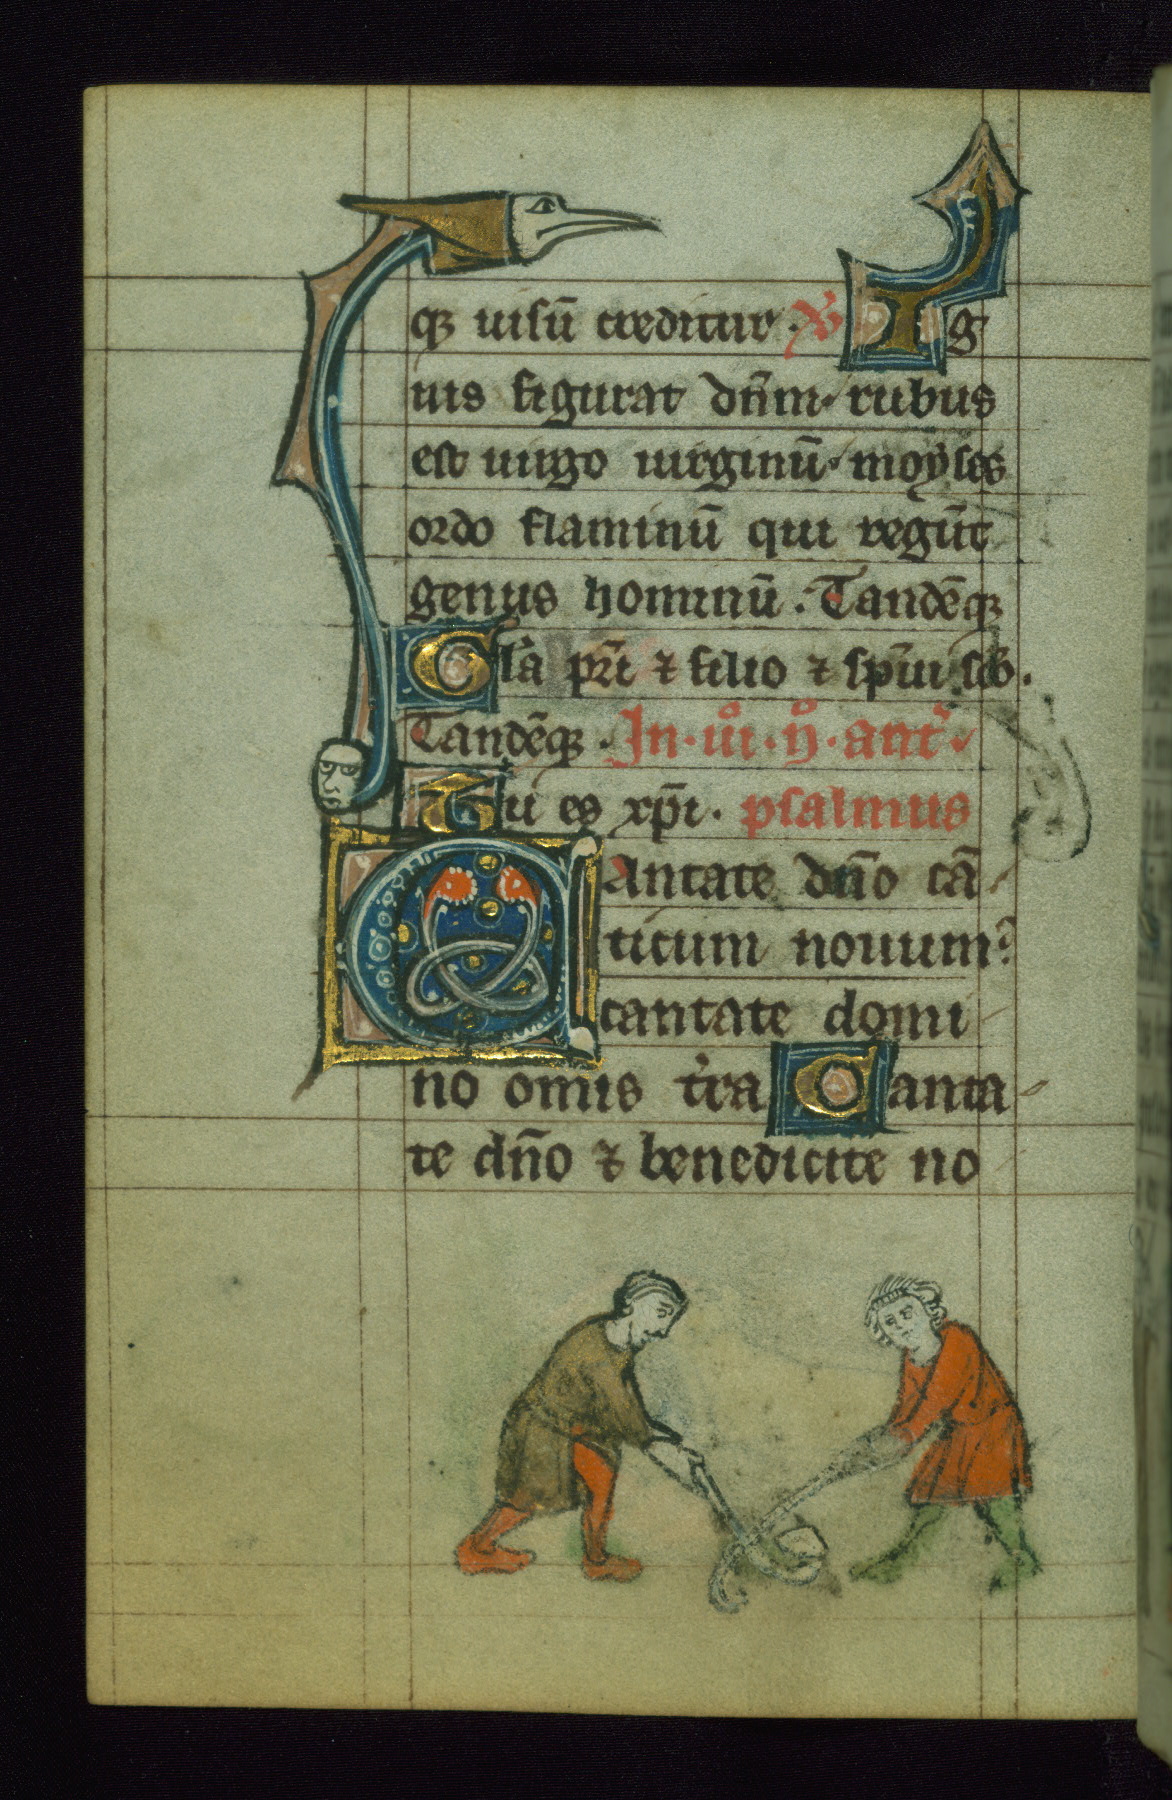 qꝫ uisū creditur · ℟ Ig
nis figurat dn̄m · rubus
est uirgo uirginū · moyses
ordo flaminū qui regūt
genus hominū . Tandēqꝫ
Gl'a pr̄i ⁊ filio ⁊ sp̄ui sc̄o .
Tandēqꝫ . In · iii° · n° · ant'
Tu es xp̄i · psalmus
Cantate dn̄o cā
ticum nouum
cantate domi
no omis t'ra Canta
te dn̄o ⁊ benedicite no